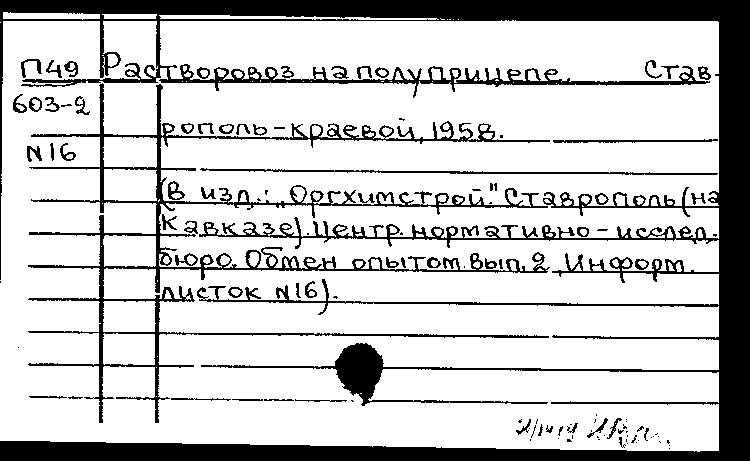 П49 Растворовоз на полуприцепе. Став-
603-2
рополь-краевой, 1958.
N16
(В изд.: "Оргхимстрой." Ставрополь (на
Кавказе). Центр. нормативно-исслед.
бюро. Обмен опытом. Вып. 2, Информ.
листок N16).